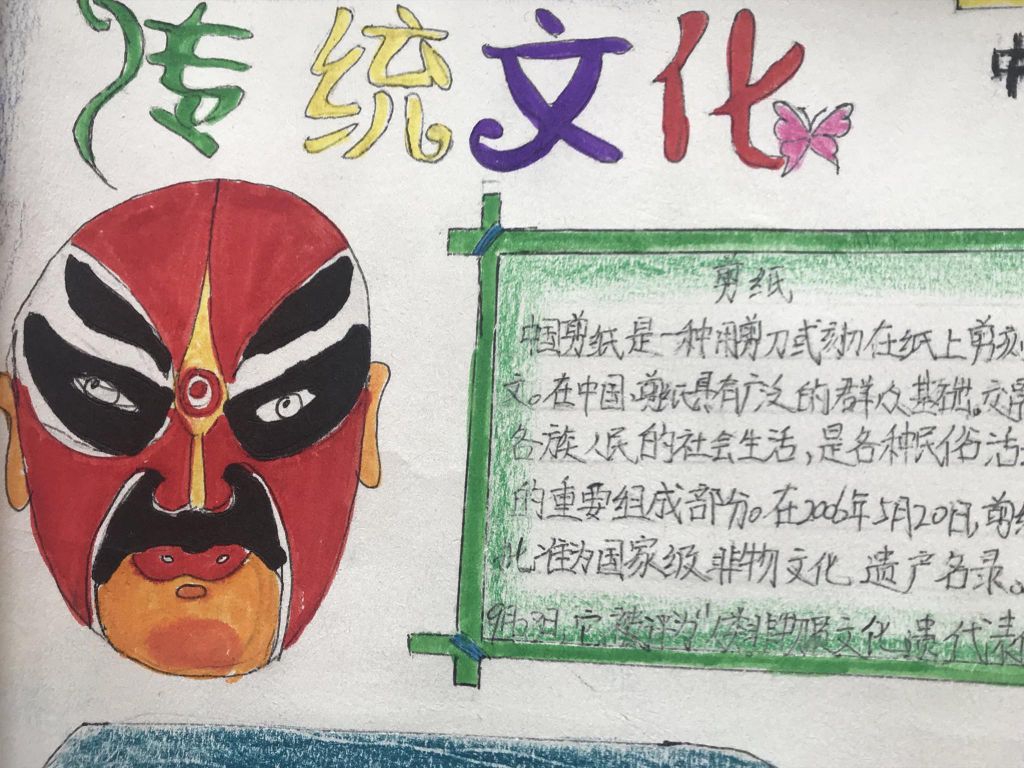 传统文化
中
剪纸
中国剪纸是一种用剪刀或刻刀在纸上剪刻
文。在中国,剪纸具有广泛的群众基础。交
各族人民的社会生活,是各种民俗活
的重要组成部分。在2006年5月20日,剪纸
批准为国家级非物文化遗产名录。
类非物质文化遗代表